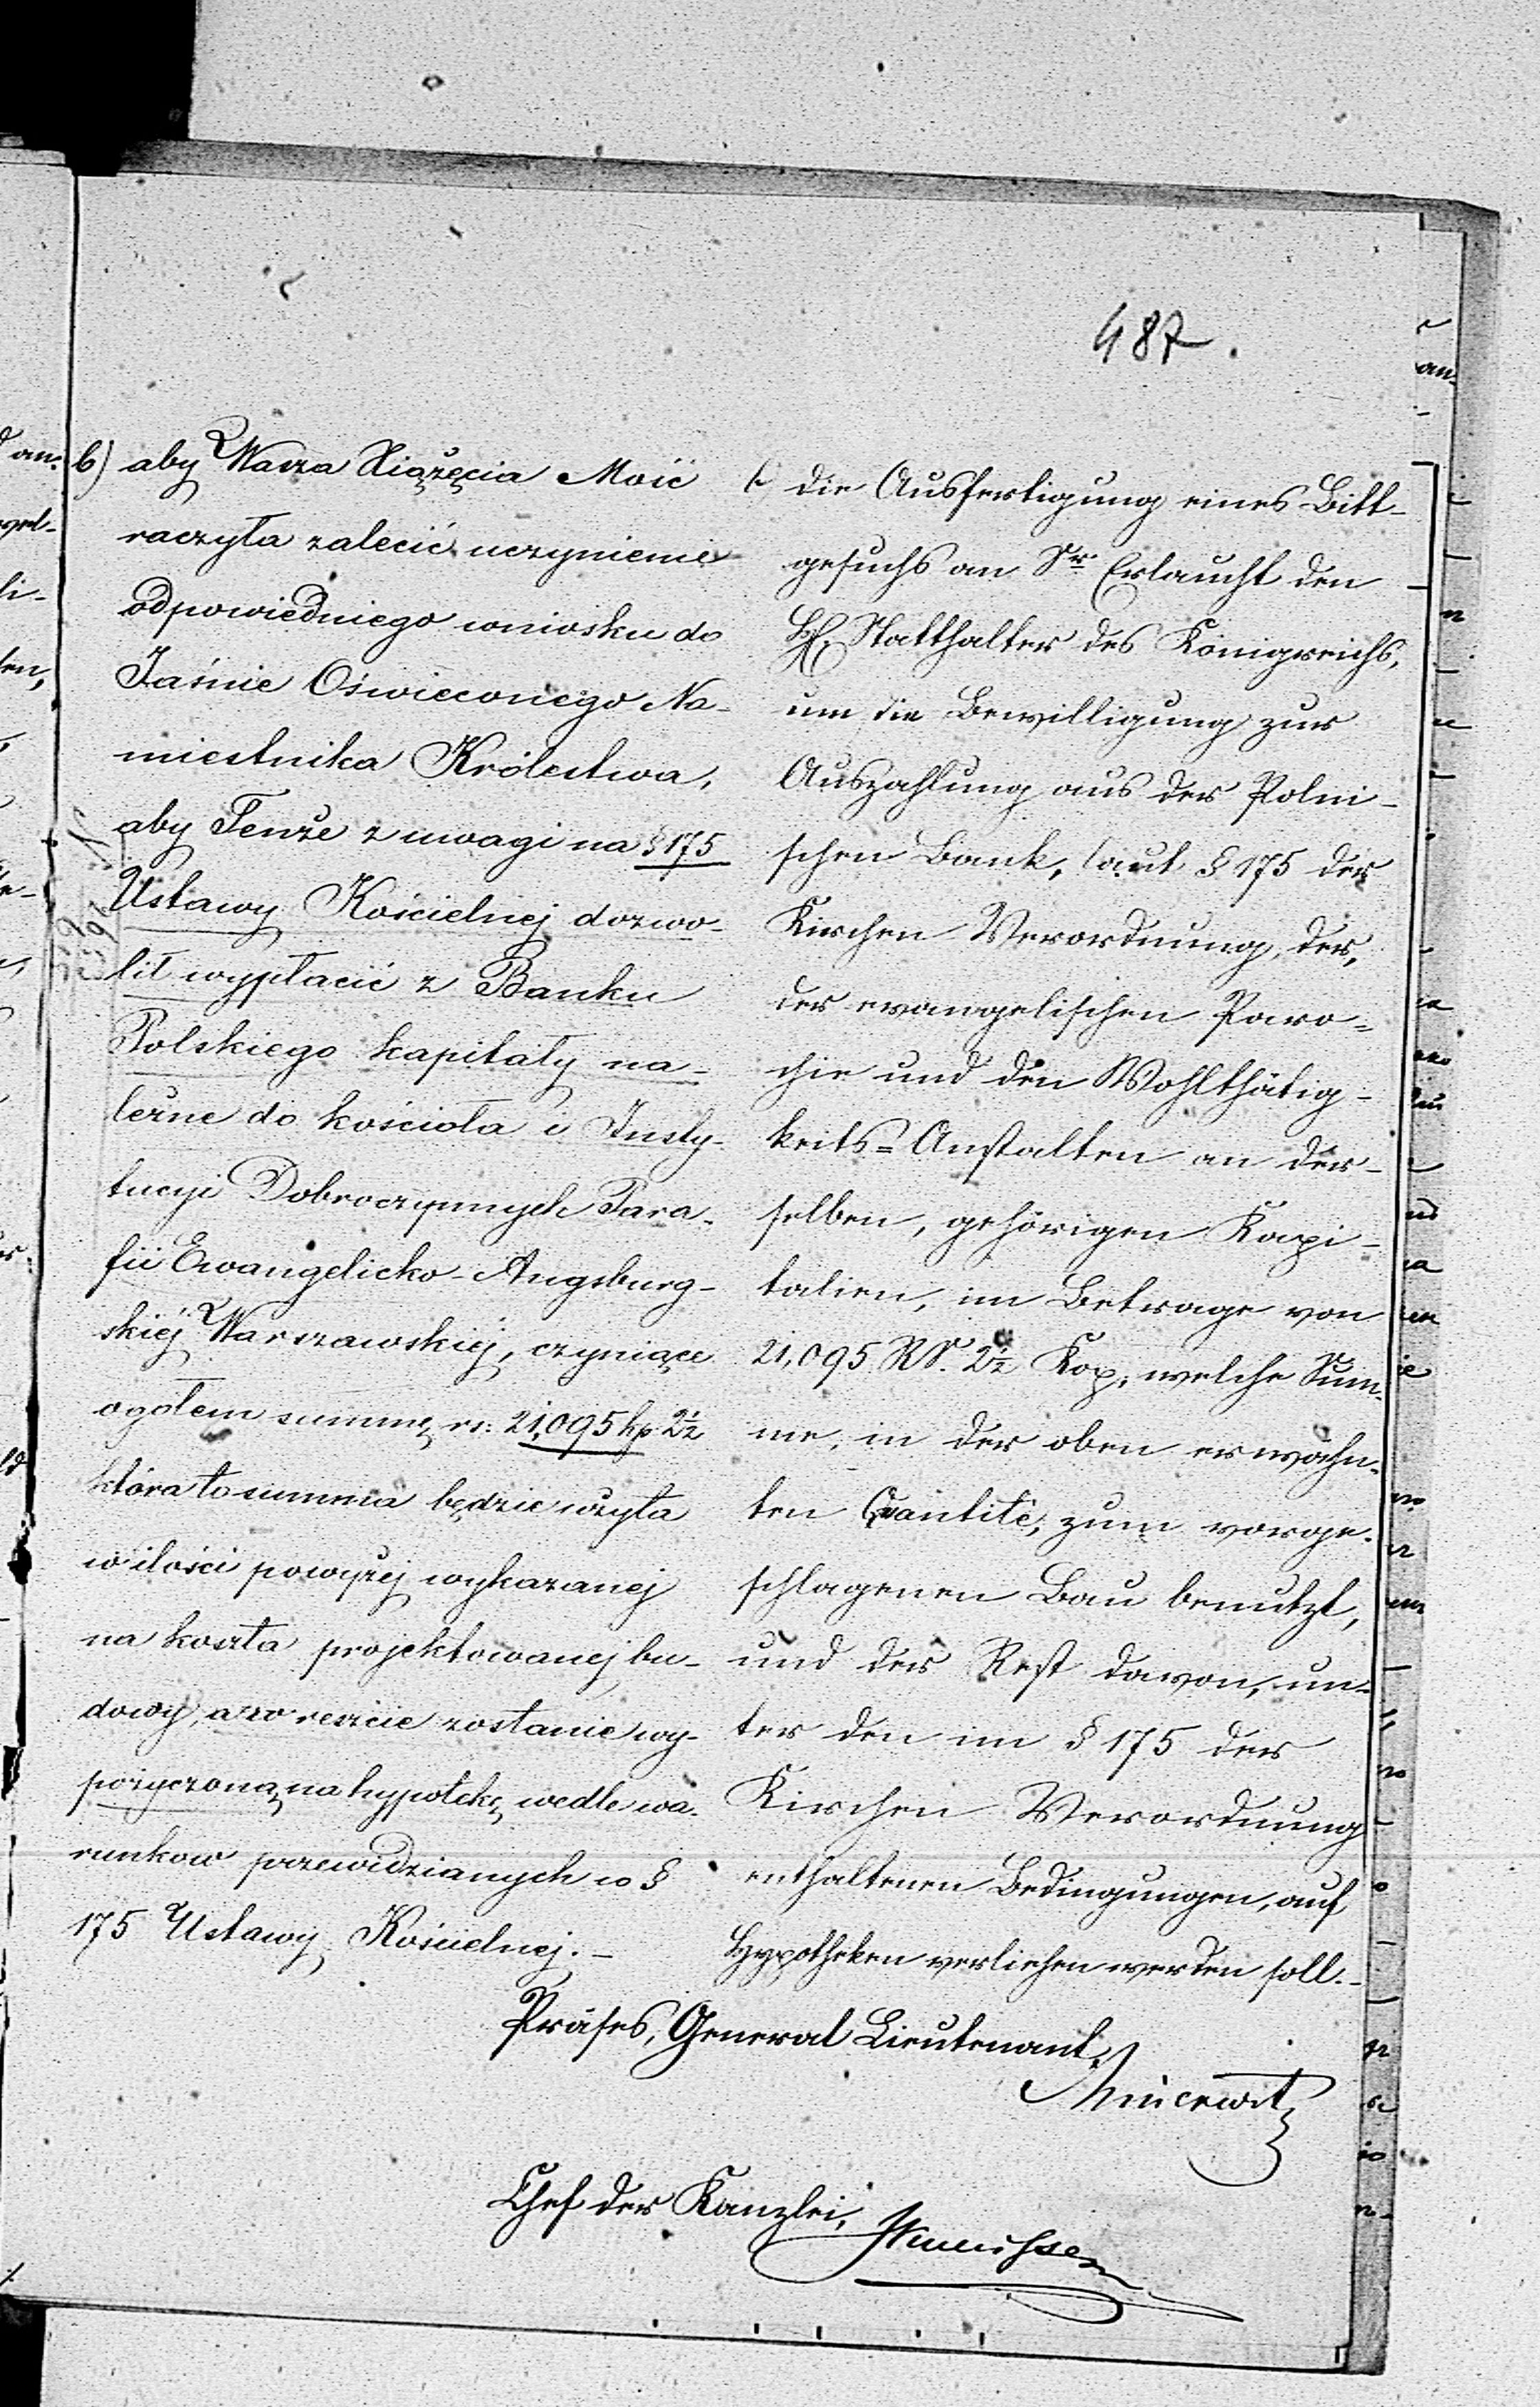 487.
b) aby Wasza Xiążęcia Mość
raczyła zalecić uczynienie
odpowiedniego wniosku do
Jaśnie Oświeconego Na-
miestnika Królestwa,
aby Tenże z uwagi na § 175
Ustawy Kościelnej dozwo-
lił wypłacić z Banku
Polskiego kapitały na-
leżne do kościoła i Insty-
tucyi Dobroczynnych Para-
fii Ewangelicko-Augsburg-
skiéj Warszawskiéj, czyniące
ogółem summę rs: 21,095 kp 2½
która to summa będzie użyta
w ilości powyżej wykazanej
na koszta projektowanej bu-
dowy, a w reszcie zostanie wy-
pożyczoną na hypotekę wedle wa-
runkow przewidzianych w §
175 Ustawy Kościelnej.-
b die Ausfertigung eines Bitt-
gesuchs an Sr Erlaucht den
H. Statthalter des Königreichs,
um die Bewilligung zur
Auszahlung aus der Polni-
schen Bank, laut § 175 der
Kirchen Verordnung, der,
der evangelischen Paro-
chie und den Wohlthätig-
keits=Anstalten an der-
selben, gehörigen Kapi-
talien, im Betrage von
21,095 RS. 2½ Kop, welche Sum-
me, in der oben erwähn-
ten Quantité, zum vorge-
schlagenen Bau benutzt,
und der Rest davon, un-
ter den im § 175 der
Kirchen Verordnung
enthaltenen Bedingungen, auf
Hypotheken verliehen werden soll.-
Präses, General Lieutenant,
Chef der Kanzlei,